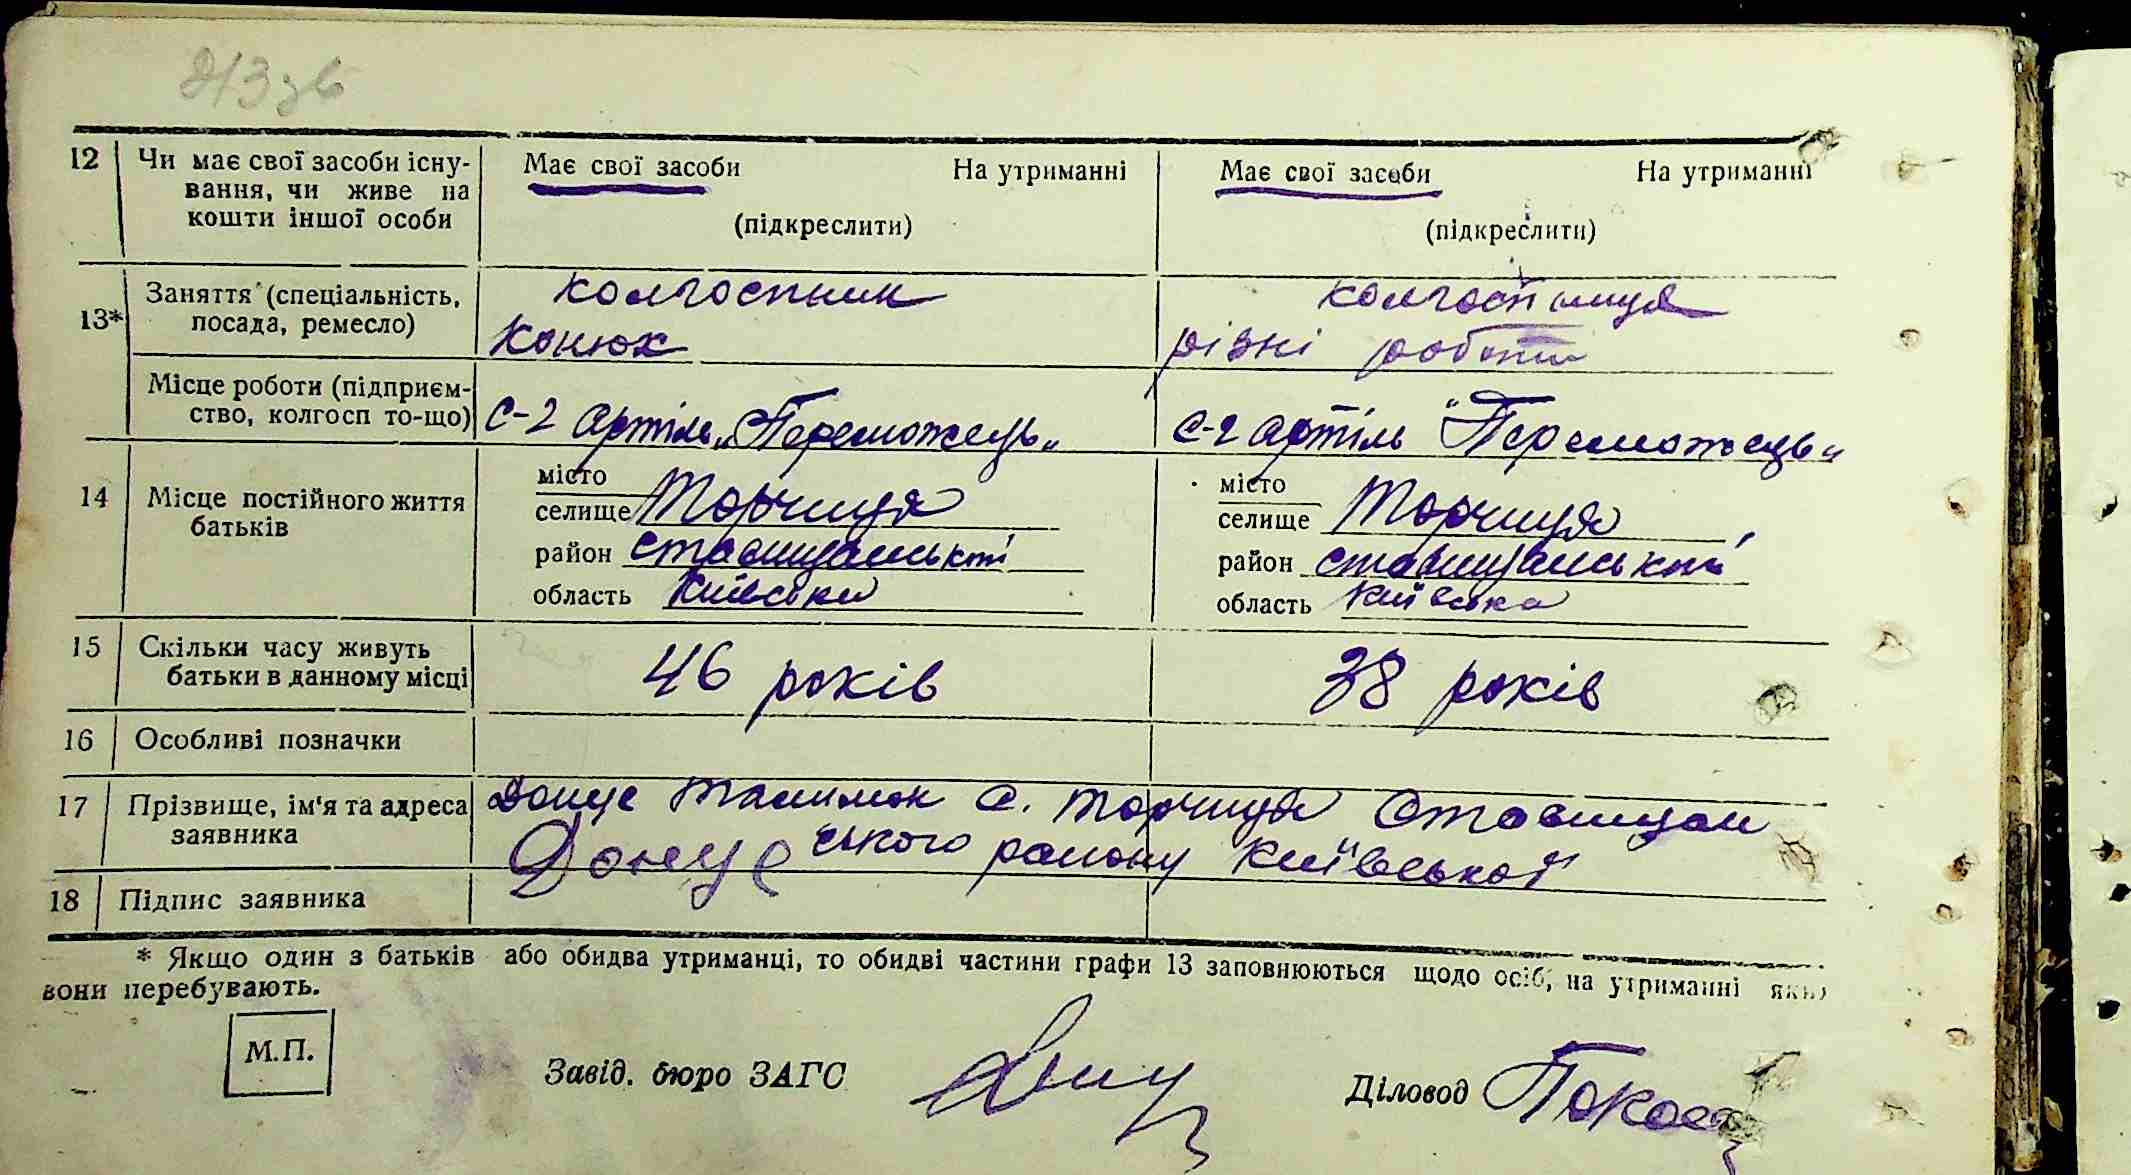 213 зв
12 Чи має свої засоби існу- Має свої засоби На утриманні Має свої засоби На утриманні
вання, чи живе на
кошти іншої особи (підкреслити) (підкреслити)
13* Заняття (спеціальність, колгоспник колгоспниця
посада, ремесло) Конюх різні роботи
Місце роботи (підприєм-
ство, колгосп то-що) С-2 Артіль „Переможець„ С-2 артіль "Переможець„
14 Місце постійного життя місто місто
батьків селище Торчиця селище Торчиця
район Ставищанський район Ставищанський
область Київська область Київська
15 Скільки часу живуть 46 років 38 років
батьки в данному місці
16 Особливі позначки
17 Прізвище, ім'я та адреса Донце с. Торчиця Ставищан
заявника ського району Київської
Донце
18 Підпис заявника
* Якщо один з батьків або обидва утриманці, то обидві частини графи 13 заповнюються щодо осіб, на утриманні яких
вони перебувають.
М.П.
Завід. бюро ЗАГС
Діловод